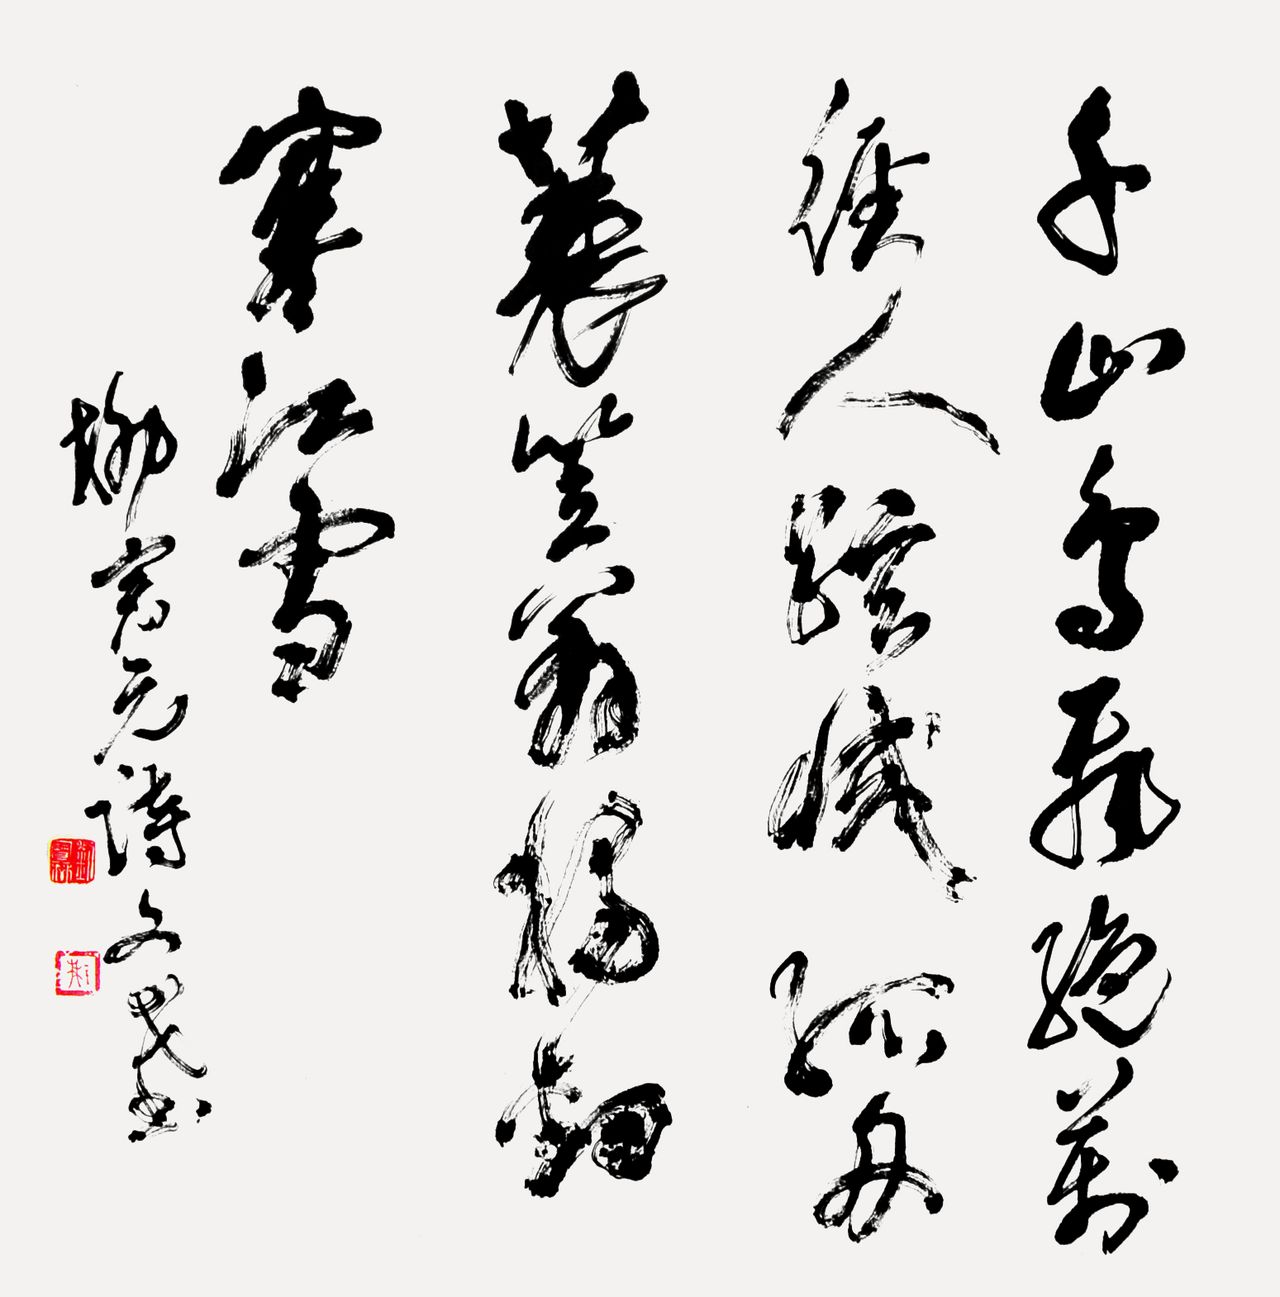 千山鳥飛絕萬
徑人踪滅孤舟
蓑笠翁獨釣
寒江雪
柳宗元詩 文